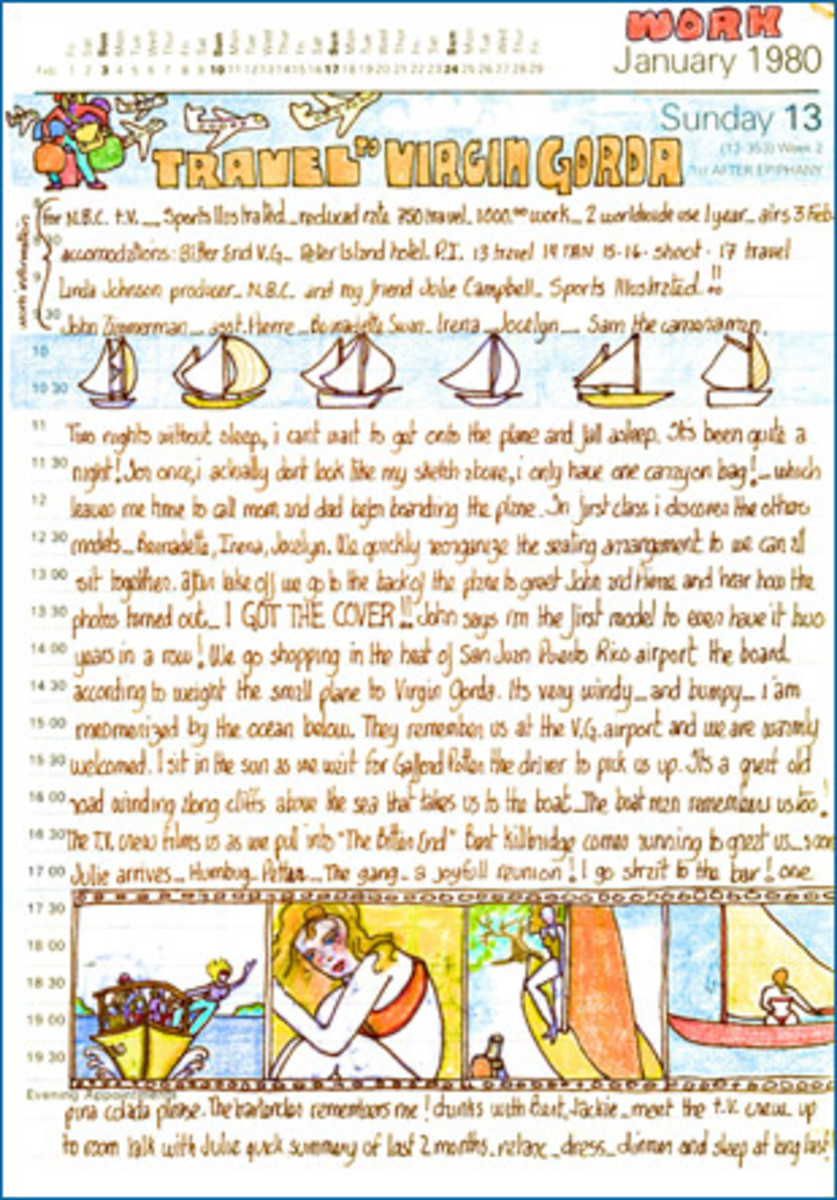 WORK
January 1980
Feb. 1 2 3 4 5 6 7 8 9 10 11 12 13 14 15 16 17 18 19 20 21 22 23 24 25 26 27 28 29
Sunday 13
(13-353) Week 2
1st AFTER EPIPHANY
TRAVEL TO VIRGIN GORDA
work information
for N.B.C. t.V. __ Sports Illustrated_ reduced rate 750 travel. 1000.00 work_ 2 worldwide use 1 year_ airs 3 Feb
accomodations: Bitter End V.G._ Peter Island hotel. P.I. 13 travel 14 TAN 15-16. shoot. 17 travel
Linda Johnson producer_ N.B.C. and my friend Julie Campbell_ Sports Illustrated.!!
John Zimmerman__ asst. Pierre_ Bernadette Swan_ Irena_ Jocelyn__ Sam the cameraman.
Two nights without sleep, i cant wait to get onto the plane and fall asleep. It's been quite a
night! For once, i actually dont look like my sketch above, i only have one carryon bag!_ which
leaves me time to call mom and dad before boarding the plane. In first class i discover the other
models_ Bernadette, Irena, Jocelyn. We quickly reorganize the seating arrangement so we can all
sit together. after take off we go to the back of the plane to greet John and Pierre and hear how the
photos turned out_ I GOT THE COVER!! John says i'm the first model to even have it two
years in a row! We go shopping in the heat of San Juan Puerto Rico airport the board
according to weight the small plane to Virgin Gorda. Its very windy_ and bumpy_ i am
mesmerized by the ocean below. They remember us at the V.G. airport and we are warmly
welcomed. I sit in the sun as we wait for the driver to pick us up. It's a great old
road winding along cliffs above the sea that takes us to the boat_ The boat men remembers us too!
The T.V. crew films us as we pull into "The Bitter End" comes running to greet us_ soon
Julie arrives_ Humbug_ Potter_ The gang_ a joyfull reunion! I go strait to the bar! one
pina colada please. The bartender remembers me! drinks with Jackie_ meet the t.v. crew up
to room talk with Julie quick summary of last 2 months_ relaxe_ dress_ dinner and sleep at long last!
10
10 30
11
11 30
12
12 30
13 00
13 30
14 00
14 30
15 00
15 30
16 00
16 30
17 00
17 30
18 00
18 30
19 00
19 30
Evening Appointments